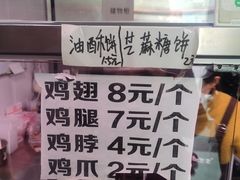 储物柜
油酥饼 芝麻糖饼
鸡翅 8元/个
鸡腿 7元/个
鸡脖 4元/个
鸡爪 2元/个